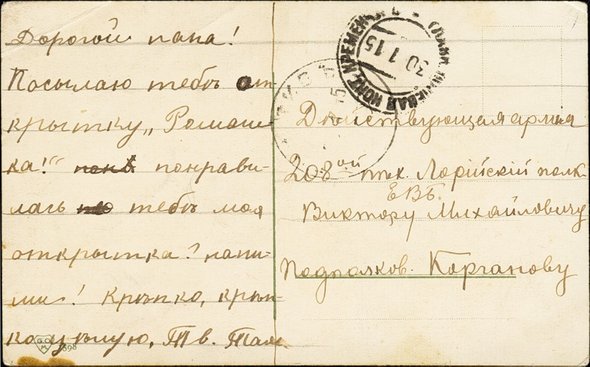 Дорогой папа!
Посылаю тебѣ от
крытку „Ромаш
ка!" понрави-
лась тебѣ моя
открытка? напи-
ши! Крѣпко, крѣп-
ко цѣлую, Тв. Таля.
30 1 15
Дѣйствующая армія
208ой пѣх. Лорійскій полк
ЕВБ.
Виктору Михайловичу
Подполков. Корганову